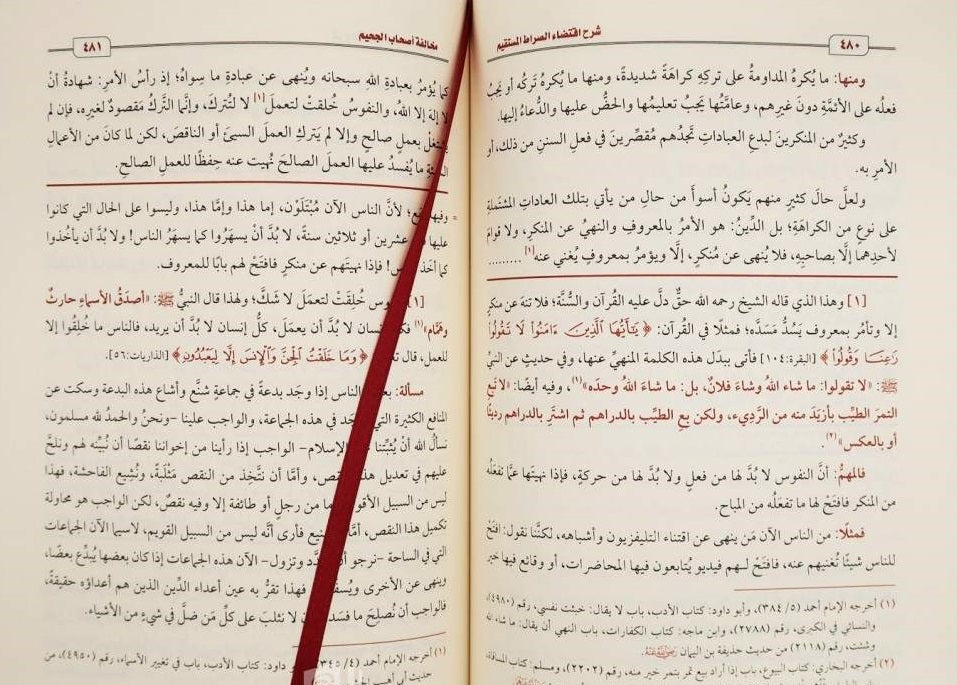 ٤٨٠
شرح اقتضاء الصراط المستقيم
ومنها: ما يُكرهُ المداومةُ على تركِهِ كراهَةً شديدةً، ومنها ما يُكرهُ تَركُه أو يَجبُ
فعلُه على الأئمَّةِ دونَ غيرِهم، وعامَّتُها يَجبُ تعليمُها والحضُّ عليها والدُّعاءُ إليها.
وكثيرٌ من المنكرينَ لبدعِ العباداتِ تَجدُهم مُقصِّرينَ في فعلِ السننِ من ذلك، أو
الأمرِ به.
ولعلَّ حالَ كثيرٍ منهم يَكونُ أسوأَ من حالِ من يأتي بتلك العاداتِ المشتملةِ
على نوعٍ من الكراهَةِ؛ بل الدِّينُ: هو الأمرُ بالمعروفِ والنهيُ عن المنكرِ، ولا قوامَ
لأحدِهما إلَّا بصاحبِهِ، فلا يُنهى عن مُنكرٍ، إلَّا ويؤمرُ بمعروفٍ يُغني عنه[١] .........
[١] وهذا الذي قاله الشيخ رحمه الله حقٌّ دلَّ عليه القرآن والسُّنَّة؛ فلا تنهَ عن منكرٍ
إلا وتأمُر بمعروف يَسُدُّ مَسَدَّه؛ فمثلًا في القرآن: ﴿ يَٰٓأَيُّهَا ٱلَّذِينَ ءَامَنُوا۟ لَا تَقُولُوا۟
رَٰعِنَا وَقُولُوا۟ ﴾ [البقرة:١٠٤] فأتى ببدَل هذه الكلمة المنهيِّ عنها، وفي حديثٍ عن النبيِّ
ﷺ: «لا تقولوا: ما شاء اللهُ وشاءَ فلانٌ، بل: ما شاءَ اللهُ وحدَه»(١)، وفيه أيضًا: «لا تَبعِ
التمرَ الطيِّبَ بأزيَدَ منه من الرَّديءِ، ولكن بِعِ الطيِّبَ بالدراهم ثم اشترِ بالدراهم رديئًا
أو بالعكس»(٢).
فالمهمُّ: أنَّ النفوس لا بُدَّ لها من فعلٍ ولا بُدَّ لها من حركةٍ، فإذا نهيتَها عمَّا تفعَلُه
من المنكر فافتَحْ لها ما تفعَلُه من المباح.
فمثلًا: من الناس الآن مَن ينهى عن اقتناء التليفزيون وأشباهه، لكنَّنا نقول: افتَحْ
للناس شيئًا تُغنيهم عنه، فافتَحْ لهم فيديو يُتابعون فيها المحاضرات، أو وقائع فيها خير
(١) أخرجه الإمام أحمد (٥/ ٣٨٤)، وأبو داود: كتاب الأدب، باب لا يقال: خبثت نفسي، رقم (٤٩٨٠)،
والنسائي في الكبرى، رقم (٢٧٨٨)، وابن ماجه: كتاب الكفارات، باب النهي أن يقال: ما شاء الله
وشئت، رقم (٢١١٨) من حديث حذيفة بن اليمان رضي الله عنه.
(٢) أخرجه البخاري: كتاب البيوع، باب إذا أراد بيع تمر بتمر خير منه، رقم (٢٢٠٢)، ومسلم: كتاب المساقاة،
مخالفة أصحاب الجحيم
٤٨١
كما يُؤمرُ بعبادةِ اللهِ سبحانه ويُنهى عن عبادةِ ما سِواهُ؛ إذ رأسُ الأمرِ: شهادةُ أنْ
لا إلهَ إلا اللهُ، والنفوسُ خُلقتْ لتعملَ[١] لا لتُتركَ، وإنَّما التَّركُ مَقصودٌ لغيرِه، فإن لم
يشتغلْ بعملٍ صالحٍ وإلا لم يَتركِ العملَ السيئَ أو الناقصَ، لكن لما كانَ من الأعمالِ
السيئةِ ما يُفسدُ عليها العملَ الصالحَ نُهيت عنه حِفظًا للعملِ الصالحِ.
= وفيها نفع؛ لأنَّ الناس الآن مُبْتَلَوْن، إما هذا وإمَّا هذا، وليسوا على الحال التي كانوا
عليها عشرين أو ثلاثين سنةً، لا بُدَّ أنْ يسهَرُوا كما يسهَرُ الناس! ولا بُدَّ أن يأخُذوا
كما أخَذ الناس! فإذا نهيتَهم عن منكرٍ فافتَحْ لهم بابًا للمعروف.
[١] النفوس خُلِقَتْ لتعمَلَ لا شَكَّ؛ ولهذا قال النبيُّ ﷺ: «أصدَقُ الأسماءِ حارثٌ
وهمَّام»(١) فكل إنسان لا بُدَّ أن يعمَلَ، كلُّ إنسان لا بُدَّ أن يريد، فالناس ما خُلِقُوا إلا
للعمل، قال تعالى: ﴿ وَمَا خَلَقْتُ ٱلْجِنَّ وَٱلْإِنسَ إِلَّا لِيَعْبُدُونِ ﴾ [الذاريات:٥٦].
مسألة: بعض الناس إذا وجَد بدعةً في جماعةٍ شنَّع وأشاع هذه البدعة وسكت عن
المنافع الكثيرة التي توجَد في هذه الجماعة، والواجب علينا -ونحنُ والحمدُ لله مسلمون،
نسألُ اللهَ أنْ يُثبِّتنا على الإسلام- الواجب إذا رأينا من إخواننا نقصًا أن نُبيِّنه لهم ونلحَّ
عليهم في تعديل هذا النقص، وأمَّا أن نتَّخِذ من النقص مَثْلَبَةً، ونُشِيع الفاحشة، فهذا
ليس من السبيل الأقوم ما من رجلٍ أو طائفة إلا وفيه نقصٌ، لكن الواجب هو محاولة
تكميل هذا النقص، أمَّا التشنيع فأرى أنَّه ليس من السبيل القويم، لاسيما الآن الجماعات
التي في الساحة -نرجو أن وتزول- الآن هذه الجماعات إذا كان بعضها يُبدِّع بعضًا،
وينهى عن الأخرى ويُسفه فهذا تقرُّ به عين أعداء الدِّين الذين هم أعداؤه حقيقةً،
فالواجب أن نُصلِحَ ما فسَد لا نثلبَ على كلِّ مَن ضلَّ في شيءٍ من الأشياء.
(١) أخرجه الإمام أحمد (٤/ ٣٤٥)، داود: كتاب الأدب، باب في تغيير الأسماء، رقم (٤٩٥٠)، من